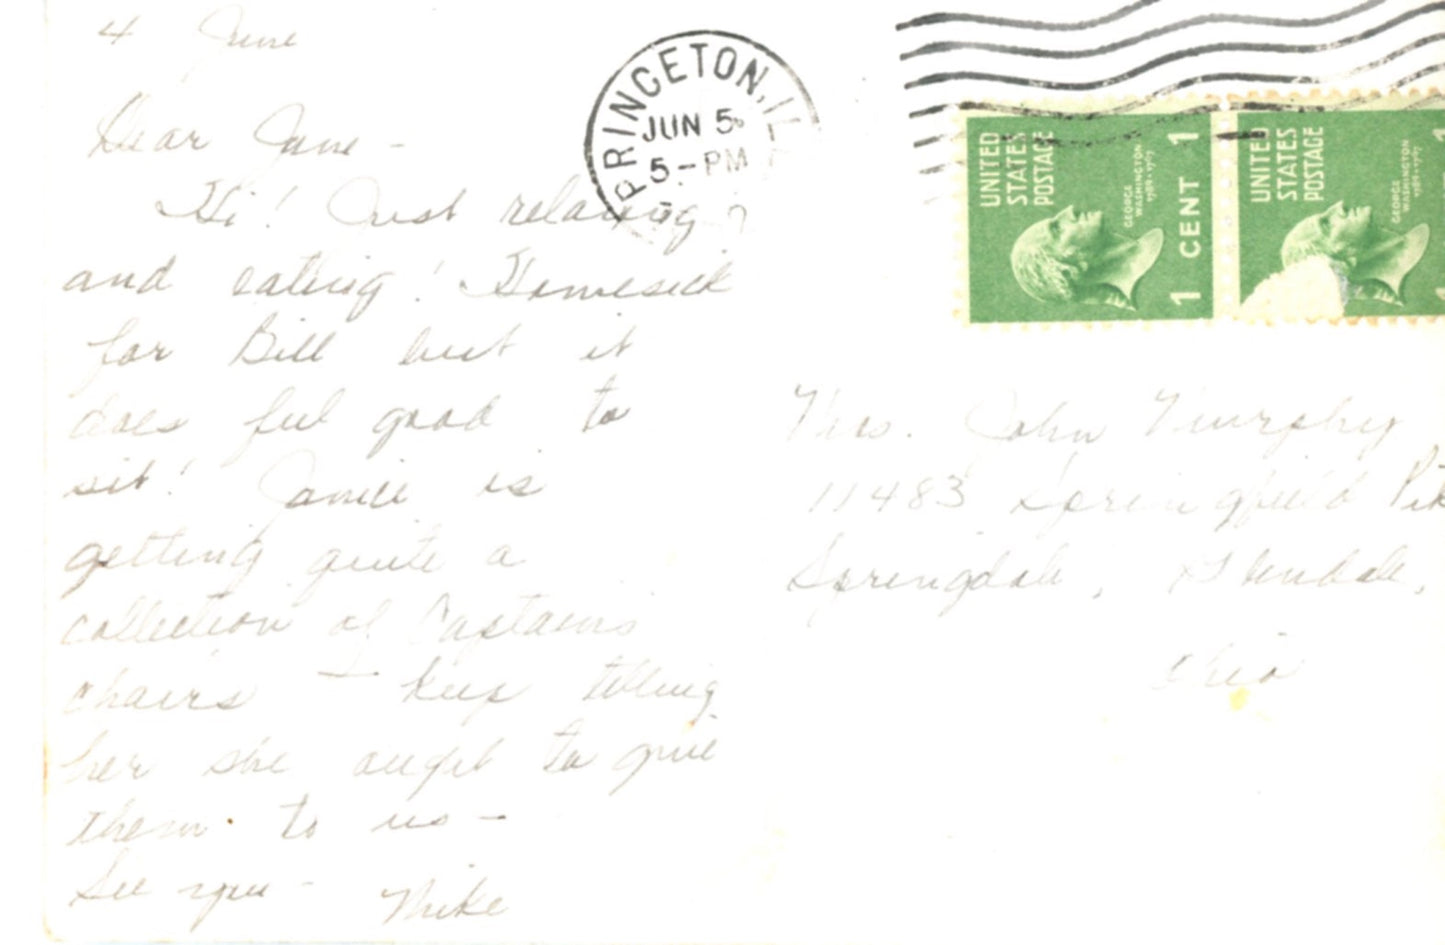 4 June
Dear Jane -
Hi! Just relaxing
and eating! Homesick
for Bill but it
does feel good to
sit! Janice is
getting quite a
collection of Captains
chairs - I keep telling
her she ought to give
them to us -
See you - Mike
PRINCETON, ILL
JUN 5
5-PM
UNITED
STATES
POSTAGE
GEORGE
WASHINGTON
1789-1797
1 CENT 1
UNITED
STATES
POSTAGE
GEORGE
WASHINGTON
1789-1797
1
1
Mrs. John Murphy
11483 Springfield Pik
Springdale, Glendale,
Ohio